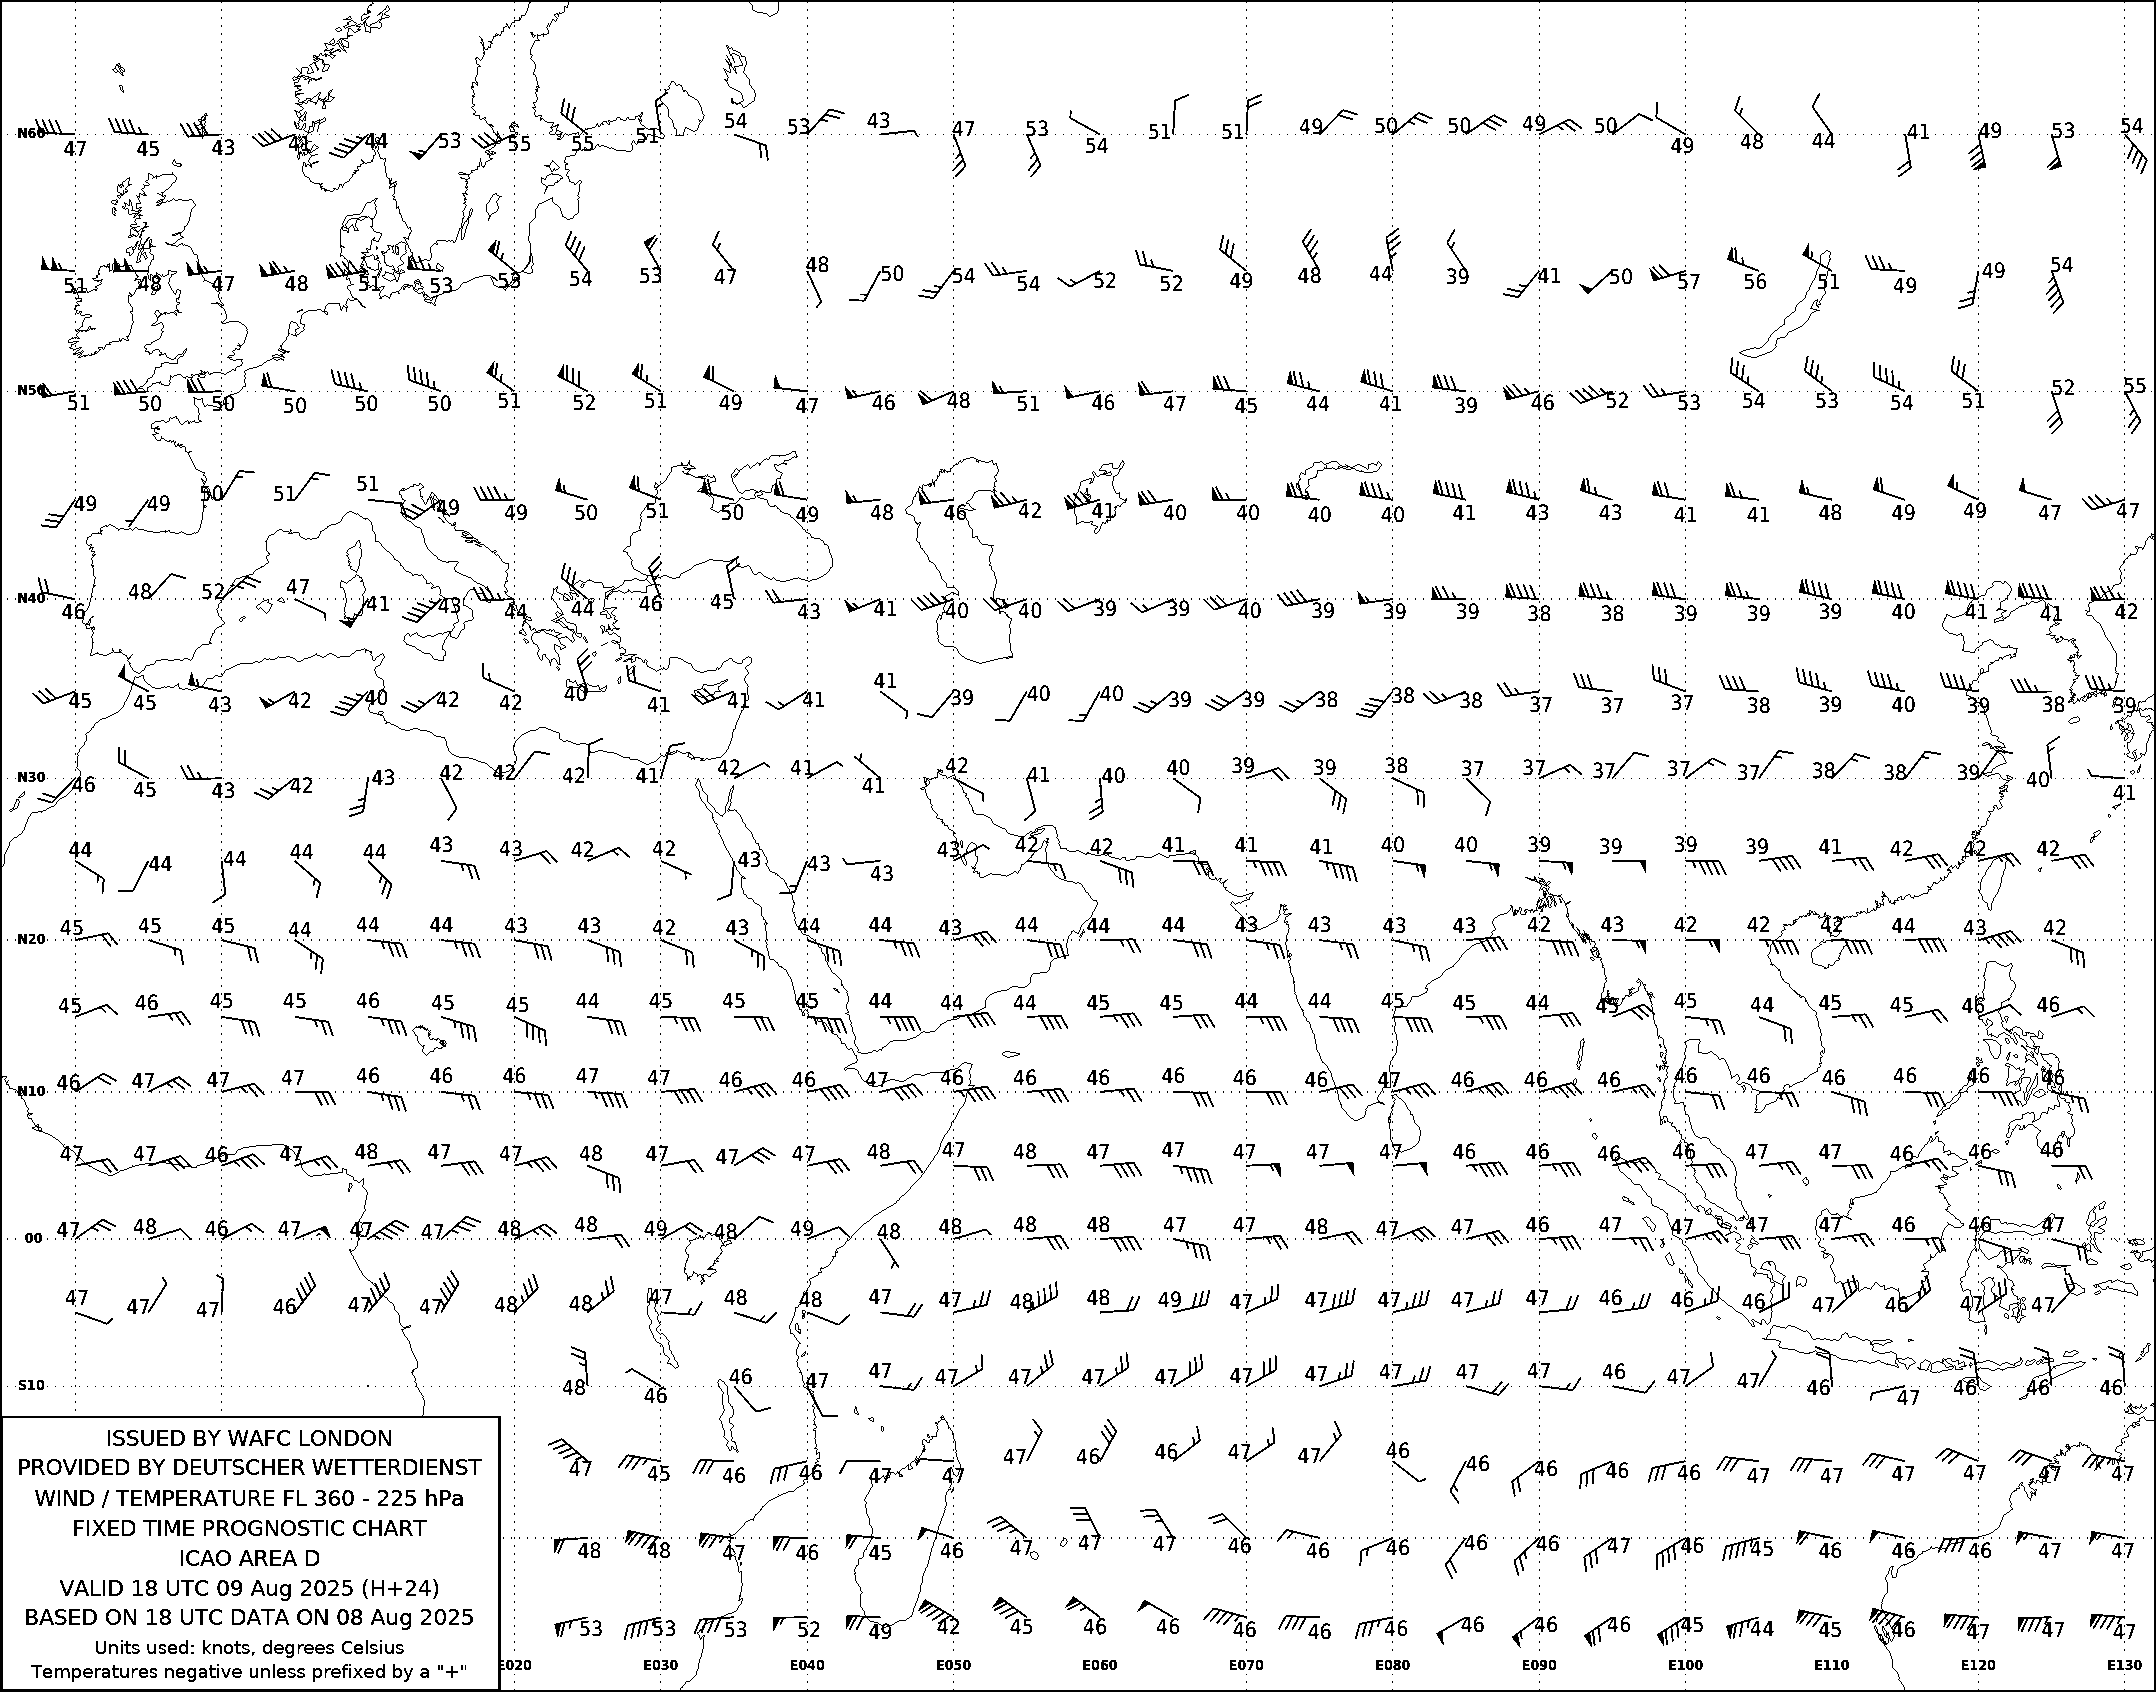 N60 47 45 43 41 44 53 55 55 51 54 53 43 47 53 54 51 51 49 50 50 49 50 49 48 44 41 49 53 54
51 48 47 48 51 53 55 54 53 47 48 50 54 54 52 52 49 48 44 39 41 50 57 56 51 49 49 54
N50 51 50 50 50 50 50 51 52 51 49 47 46 48 51 46 47 45 44 41 39 46 52 53 54 53 54 51 52 55
49 49 50 51 51 49 49 50 51 50 49 48 46 42 41 40 40 40 40 41 43 43 41 41 48 49 49 47 47
N40 46 48 52 47 41 43 44 44 46 45 43 41 40 40 39 39 40 39 39 39 38 38 39 39 39 40 41 41 42
45 45 43 42 40 42 42 40 41 41 41 41 39 40 40 39 39 38 38 38 37 37 37 38 39 40 39 38 39
N30 46 45 43 42 43 42 42 42 41 42 41 41 42 41 40 40 39 39 38 37 37 37 37 37 38 38 39 40 41
44 44 44 44 44 43 43 42 42 43 43 43 43 42 42 41 41 41 40 40 39 39 39 39 41 42 42 42
N20 45 45 45 44 44 44 43 43 42 43 44 44 43 44 44 44 43 43 43 43 42 43 42 42 42 44 43 42
45 46 45 45 46 45 45 44 45 45 45 44 44 44 45 45 44 44 45 45 44 45 45 44 45 45 46 46
N10 46 47 47 47 46 46 46 47 47 46 46 47 46 46 46 46 46 46 47 46 46 46 46 46 46 46 46 46
47 47 46 47 48 47 47 48 47 47 47 48 47 48 47 47 47 47 47 46 46 46 46 47 47 46 46 46
00 47 48 46 47 47 47 48 48 49 48 49 48 48 48 48 47 47 48 47 47 46 47 47 47 47 46 46 47
47 47 47 46 47 47 48 48 47 48 48 47 47 48 48 49 47 47 47 47 47 46 46 46 47 46 47 47
S10 48 46 46 47 47 47 47 47 47 47 47 47 47 47 46 47 47 46 47 46 46 46
47 45 46 46 47 47 47 46 46 47 47 46 46 46 46 46 47 47 47 47 47 47
48 48 47 46 45 46 47 47 47 46 46 46 46 46 47 46 45 46 46 46 47 47
53 53 53 52 49 42 45 46 46 46 46 46 46 46 46 45 44 45 46 47 47 47
E020 E030 E040 E050 E060 E070 E080 E090 E100 E110 E120 E130
ISSUED BY WAFC LONDON
PROVIDED BY DEUTSCHER WETTERDIENST
WIND / TEMPERATURE FL 360 - 225 hPa
FIXED TIME PROGNOSTIC CHART
ICAO AREA D
VALID 18 UTC 09 Aug 2025 (H+24)
BASED ON 18 UTC DATA ON 08 Aug 2025
Units used: knots, degrees Celsius
Temperatures negative unless prefixed by a "+"